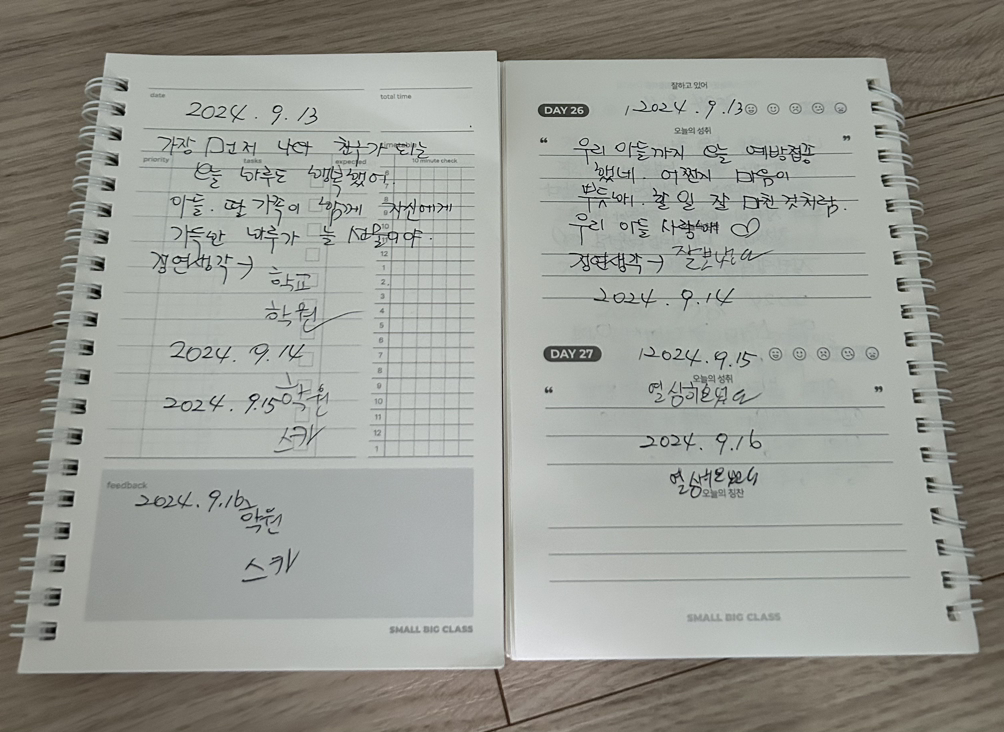 date
total time
2024. 9. 13
가장 먼저 나와 친구가 되는
priority
tasks
expected
10 minute check
오늘 하루도 행복했어.
아들. 딸 가족이 함께 자신에게
가득한 하루가 늘 선물이야.
정연생각→
학교
학원
2024. 9. 14
학원
2024. 9. 15
스카
feedback
2024. 9. 16
학원
스카
SMALL BIG CLASS
잘하고 있어
DAY 26
2024. 9. 13
오늘의 성취
“ ”
우리 아들까지 오늘 예방접종
했네. 어쩐지 마음이
뿌듯해. 할 일 잘 마친 것처럼.
우리 아들 사랑해 ♡
정연생각→ 잘보냈다
2024. 9. 14
DAY 27
2024. 9. 15
오늘의 성취
“ ”
열심히보냈다
2024. 9. 16
오늘의 칭찬
SMALL BIG CLASS